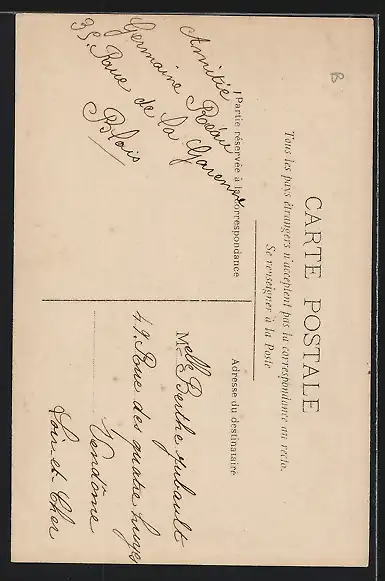 B
CARTE POSTALE
Tous les pays étrangers n'acceptent pas la correspondance au recto.
Se renseigner à la Poste
Partie réservée à la correspondance
Adresse du destinataire
Amitié
Germaine
35. Rue de la Garenne
Blois
Melle Berthe
49. Rue des quatre
Vendôme
Loir et Cher